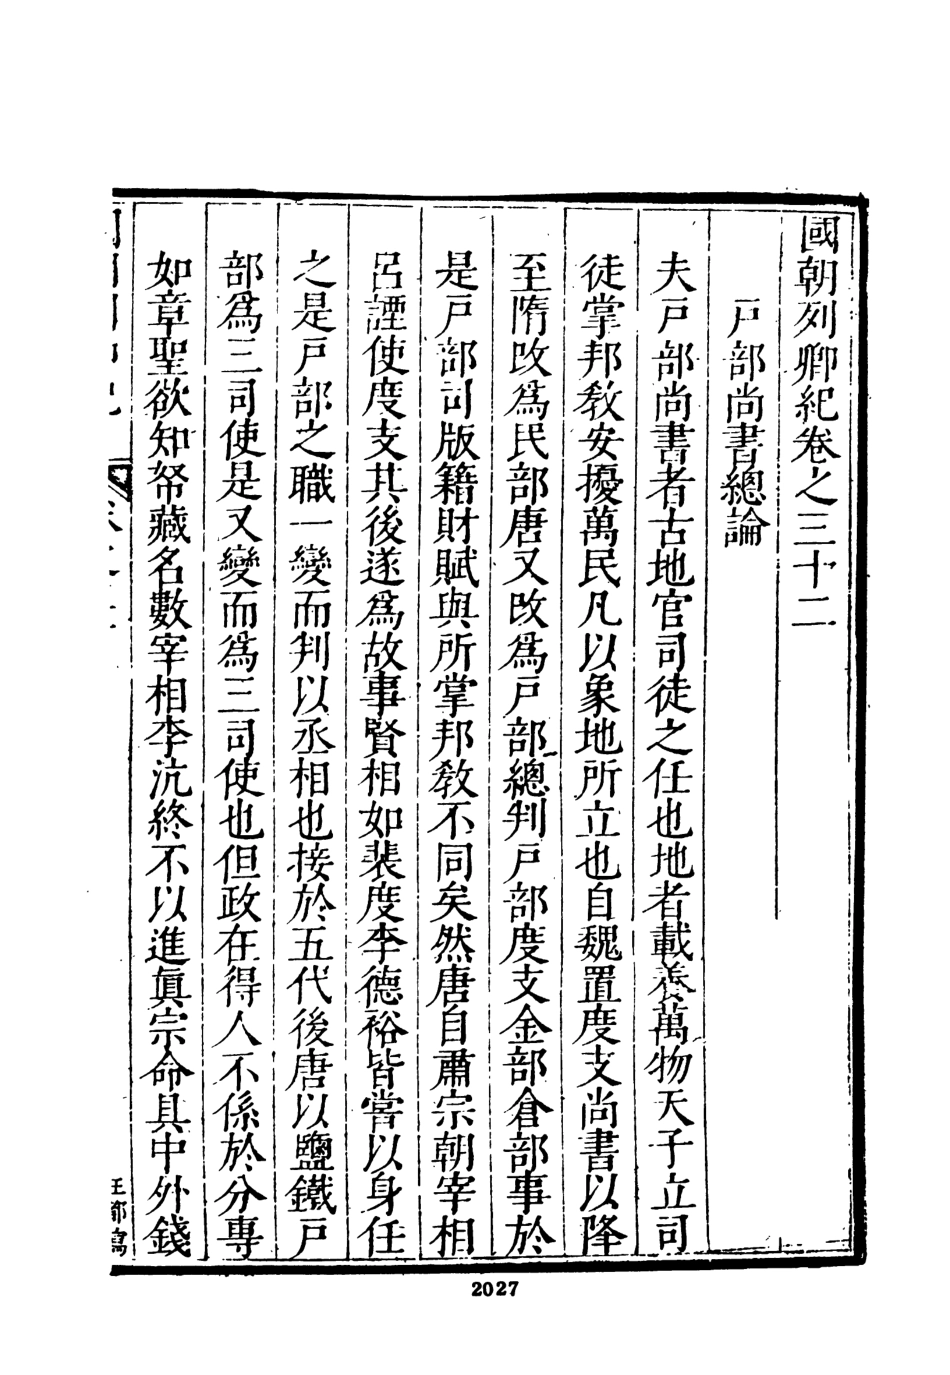 國朝列卿紀卷之三十二
戸部尚書總論
夫戸部尚書者古地官司徒之任也地者載養萬物天子立司
徒掌邦敎安擾萬民凡以象地所立也自魏置度支尚書以降
至隋改爲民部唐又改爲戸部總判戸部度支金部倉部事於
是戸部司版籍財賦與所掌邦敎不同矣然唐自肅宗朝宰相
呂諲使度支其後遂爲故事賢相如裴度李德裕皆嘗以身任
之是戸部之職一變而判以丞相也接於五代後唐以鹽鐵戸
部爲三司使是又變而爲三司使也但政在得人不係於分專
如章聖欲知帑藏名數宰相李沆終不以進眞宗命具中外錢
王郁寫
2027